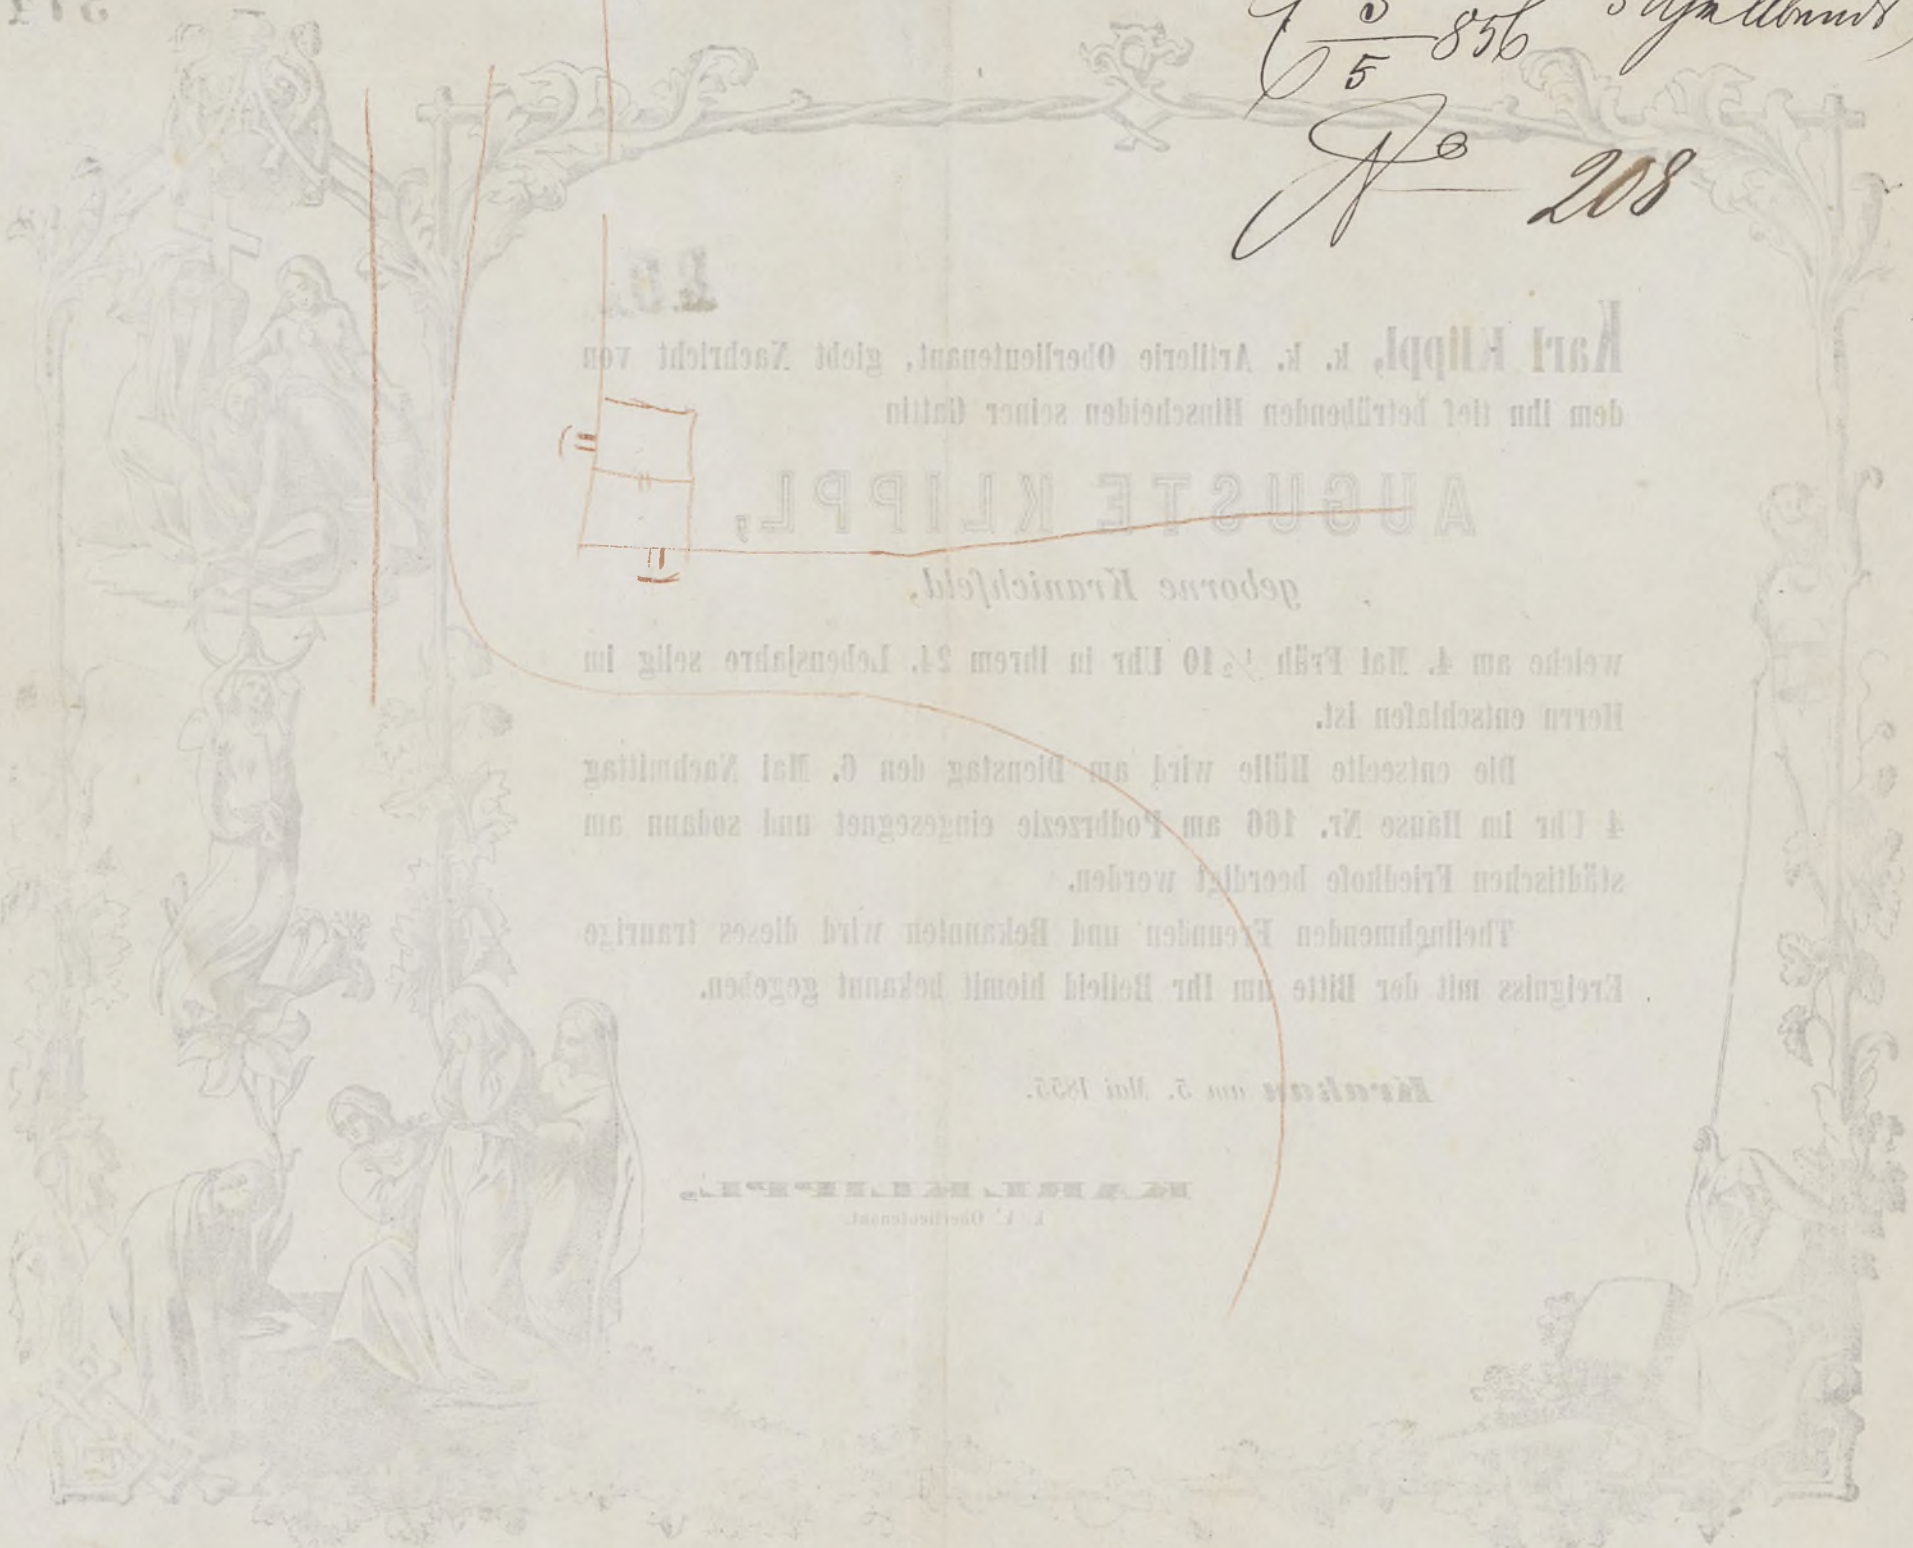 5/5 856
No 208
Karl Klippl, k. k. Artilerie Oberlieutenant, giebt Nachricht von
dem ihn tief betrübenden Hinscheiden seiner Gattin
AUGUSTE KLIPPL,
geborne Kranichfeld,
welche am 4. Mai Früh ½10 Uhr in ihrem 24. Lebensjahre selig im
Herrn entschlafen ist.
Die entseelte Hülle wird am Dienstag den 6. Mai Nachmittag
4 Uhr im Hause Nr. 166 am Podbrzezie eingesegnet und sodann am
städtischen Friedhofe beerdigt werden.
Theilnehmenden Freunden und Bekannten wird dieses traurige
Ereigniss mit der Bitte um Ihr Beileid hiemit bekannt gegeben.
am 5. Mai 1855.
KARL KLIPPL,
k. k. Oberlieutenant.